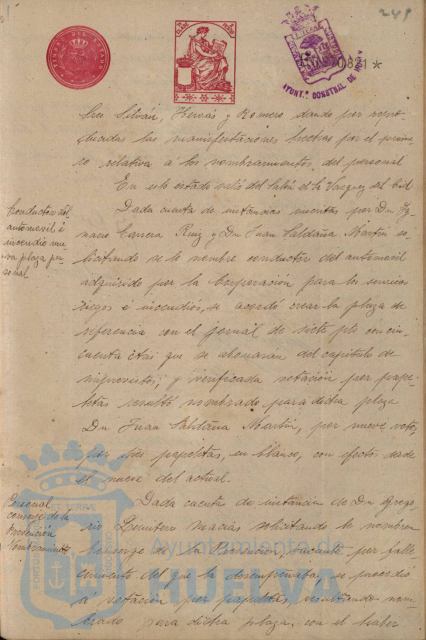 249
0821 *
AYUNT.º CONSTNAL DE
Sres Silván, Hervás y Romero dando por repro-
ducidas las manifestaciones hechas por el prime-
ro relativa á los nombramientos del personal
En este estado salió del Salón el Sr Vazquez del Cid
Conductor del
automovil é
incendio
plaza per-
sonal
Dada cuenta de instancias suscritas por Dn Yg-
nacio Carrera Ruiz y Dn Juan Saldaña Martin so-
licitando se le nombre conductor del automovil
adquirido por la Corporación para los servicios
riegos é incendios, se acordó crear la plaza de
referencia con el jornal de siete pts cin-
cuenta cts que se abonarán del capitulo de
imprevistos; y verificada votación por pape-
letas resultó nombrado para dicha plaza
Dn Juan Saldaña Martin, por nueve votos,
por dos papeletas, en blanco, con efectos desde
el nueve del actual.
Personal
conserje de la
Prevención
Nombramiento
Dada cuenta de instancia de Dn Grego-
rio Quintero Macias solicitando le nombren
conserje de la Prevención, vacante por falle-
cimiento del que la desempeñaba, se procedió
á votación por papeletas, resultando nom-
brado para dicha plaza, con el haber
Ayuntamiento de
HUELVA